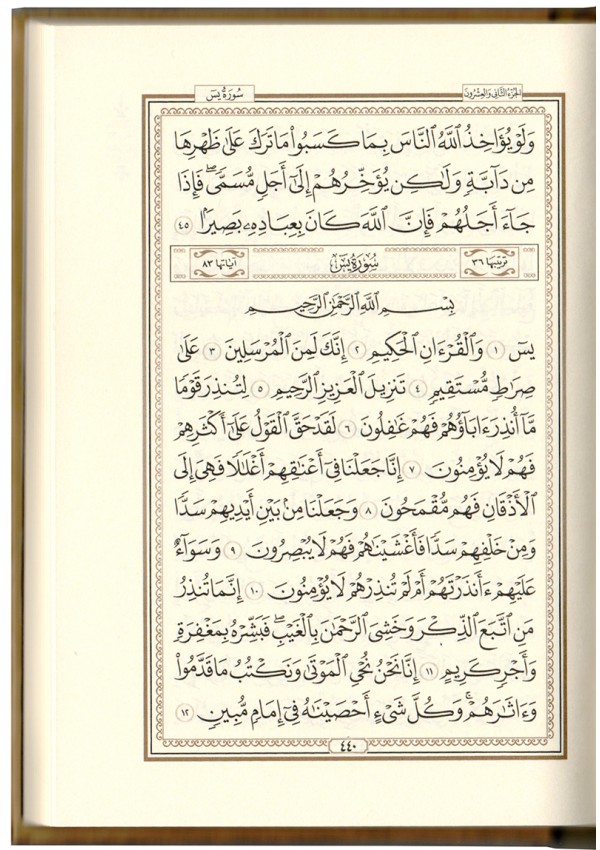 الجزء الثاني والعشرون
سورة يس
وَلَوْ يُؤَاخِذُ ٱللَّهُ ٱلنَّاسَ بِمَا كَسَبُوا۟ مَا تَرَكَ عَلَىٰ ظَهْرِهَا
مِن دَآبَّةٍ وَلَٰكِن يُؤَخِّرُهُمْ إِلَىٰٓ أَجَلٍ مُّسَمًّى ۖ فَإِذَا
جَآءَ أَجَلُهُمْ فَإِنَّ ٱللَّهَ كَانَ بِعِبَادِهِۦ بَصِيرًۢا ٤٥
ترتيبها ٣٦ سورة يس آياتها ٨٣
بِسْمِ ٱللَّهِ ٱلرَّحْمَٰنِ ٱلرَّحِيمِ
يسٓ ١ وَٱلْقُرْءَانِ ٱلْحَكِيمِ ٢ إِنَّكَ لَمِنَ ٱلْمُرْسَلِينَ ٣ عَلَىٰ
صِرَٰطٍ مُّسْتَقِيمٍ ٤ تَنزِيلَ ٱلْعَزِيزِ ٱلرَّحِيمِ ٥ لِتُنذِرَ قَوْمًا
مَّآ أُنذِرَ ءَابَآؤُهُمْ فَهُمْ غَٰفِلُونَ ٦ لَقَدْ حَقَّ ٱلْقَوْلُ عَلَىٰٓ أَكْثَرِهِمْ
فَهُمْ لَا يُؤْمِنُونَ ٧ إِنَّا جَعَلْنَا فِىٓ أَعْنَٰقِهِمْ أَغْلَٰلًا فَهِىَ إِلَى
ٱلْأَذْقَانِ فَهُم مُّقْمَحُونَ ٨ وَجَعَلْنَا مِنۢ بَيْنِ أَيْدِيهِمْ سَدًّا
وَمِنْ خَلْفِهِمْ سَدًّا فَأَغْشَيْنَٰهُمْ فَهُمْ لَا يُبْصِرُونَ ٩ وَسَوَآءٌ
عَلَيْهِمْ ءَأَنذَرْتَهُمْ أَمْ لَمْ تُنذِرْهُمْ لَا يُؤْمِنُونَ ١٠ إِنَّمَا تُنذِرُ
مَنِ ٱتَّبَعَ ٱلذِّكْرَ وَخَشِىَ ٱلرَّحْمَٰنَ بِٱلْغَيْبِ ۖ فَبَشِّرْهُ بِمَغْفِرَةٍ
وَأَجْرٍ كَرِيمٍ ١١ إِنَّا نَحْنُ نُحْىِ ٱلْمَوْتَىٰ وَنَكْتُبُ مَا قَدَّمُوا۟
وَءَاثَٰرَهُمْ ۚ وَكُلَّ شَىْءٍ أَحْصَيْنَٰهُ فِىٓ إِمَامٍ مُّبِينٍ ١٢
٤٤٠